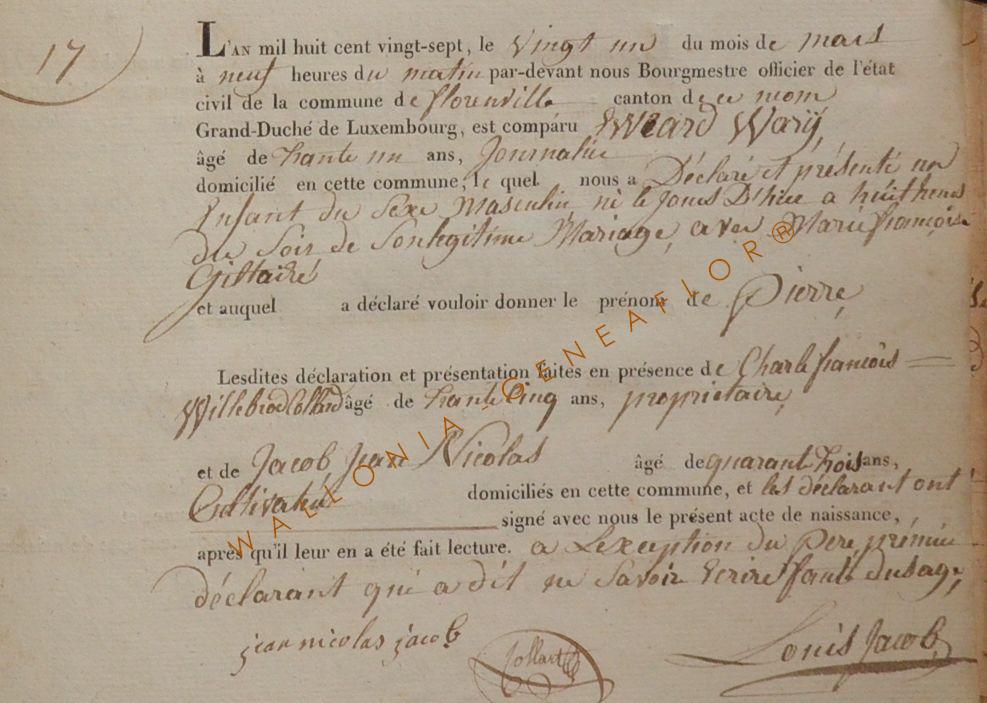 17
L'AN mil huit cent vingt-sept, le vingt un du mois de mars
à neuf heures du matin par-devant nous Bourgmestre officier de l'état
civil de la commune de florenville canton de ce nom
Grand-Duché de Luxembourg, est comparu Evrard Wary,
âgé de trante un ans, Journalier
domicilié en cette commune, le quel nous a Déclaré et présenté un
Enfant du Sexe Masculin, né le Jours D'hier a huit heures
du Soir, de Son legitime Mariage, avec Marie françoise
Giltaire
et auquel a déclaré vouloir donner le prénom de Pierre,
Lesdites déclaration et présentation faites en présence de Charle françois
Willebrod Collard âgé de trante Cinq ans, propriétaire,
et de Jacob Jean Nicolas âgé de quarant trois ans,
Cultivateur domiciliés en cette commune, et les déclarant ont
signé avec nous le présent acte de naissance,
après qu'il leur en a été fait lecture. a L'exception du Pere, prémié
déclarant qui a dit ne Savoir Ecrire faute dusage,
jean nicolas jacob
Collart
Louis Jacob
WALLONIA - GENEAFLOR®